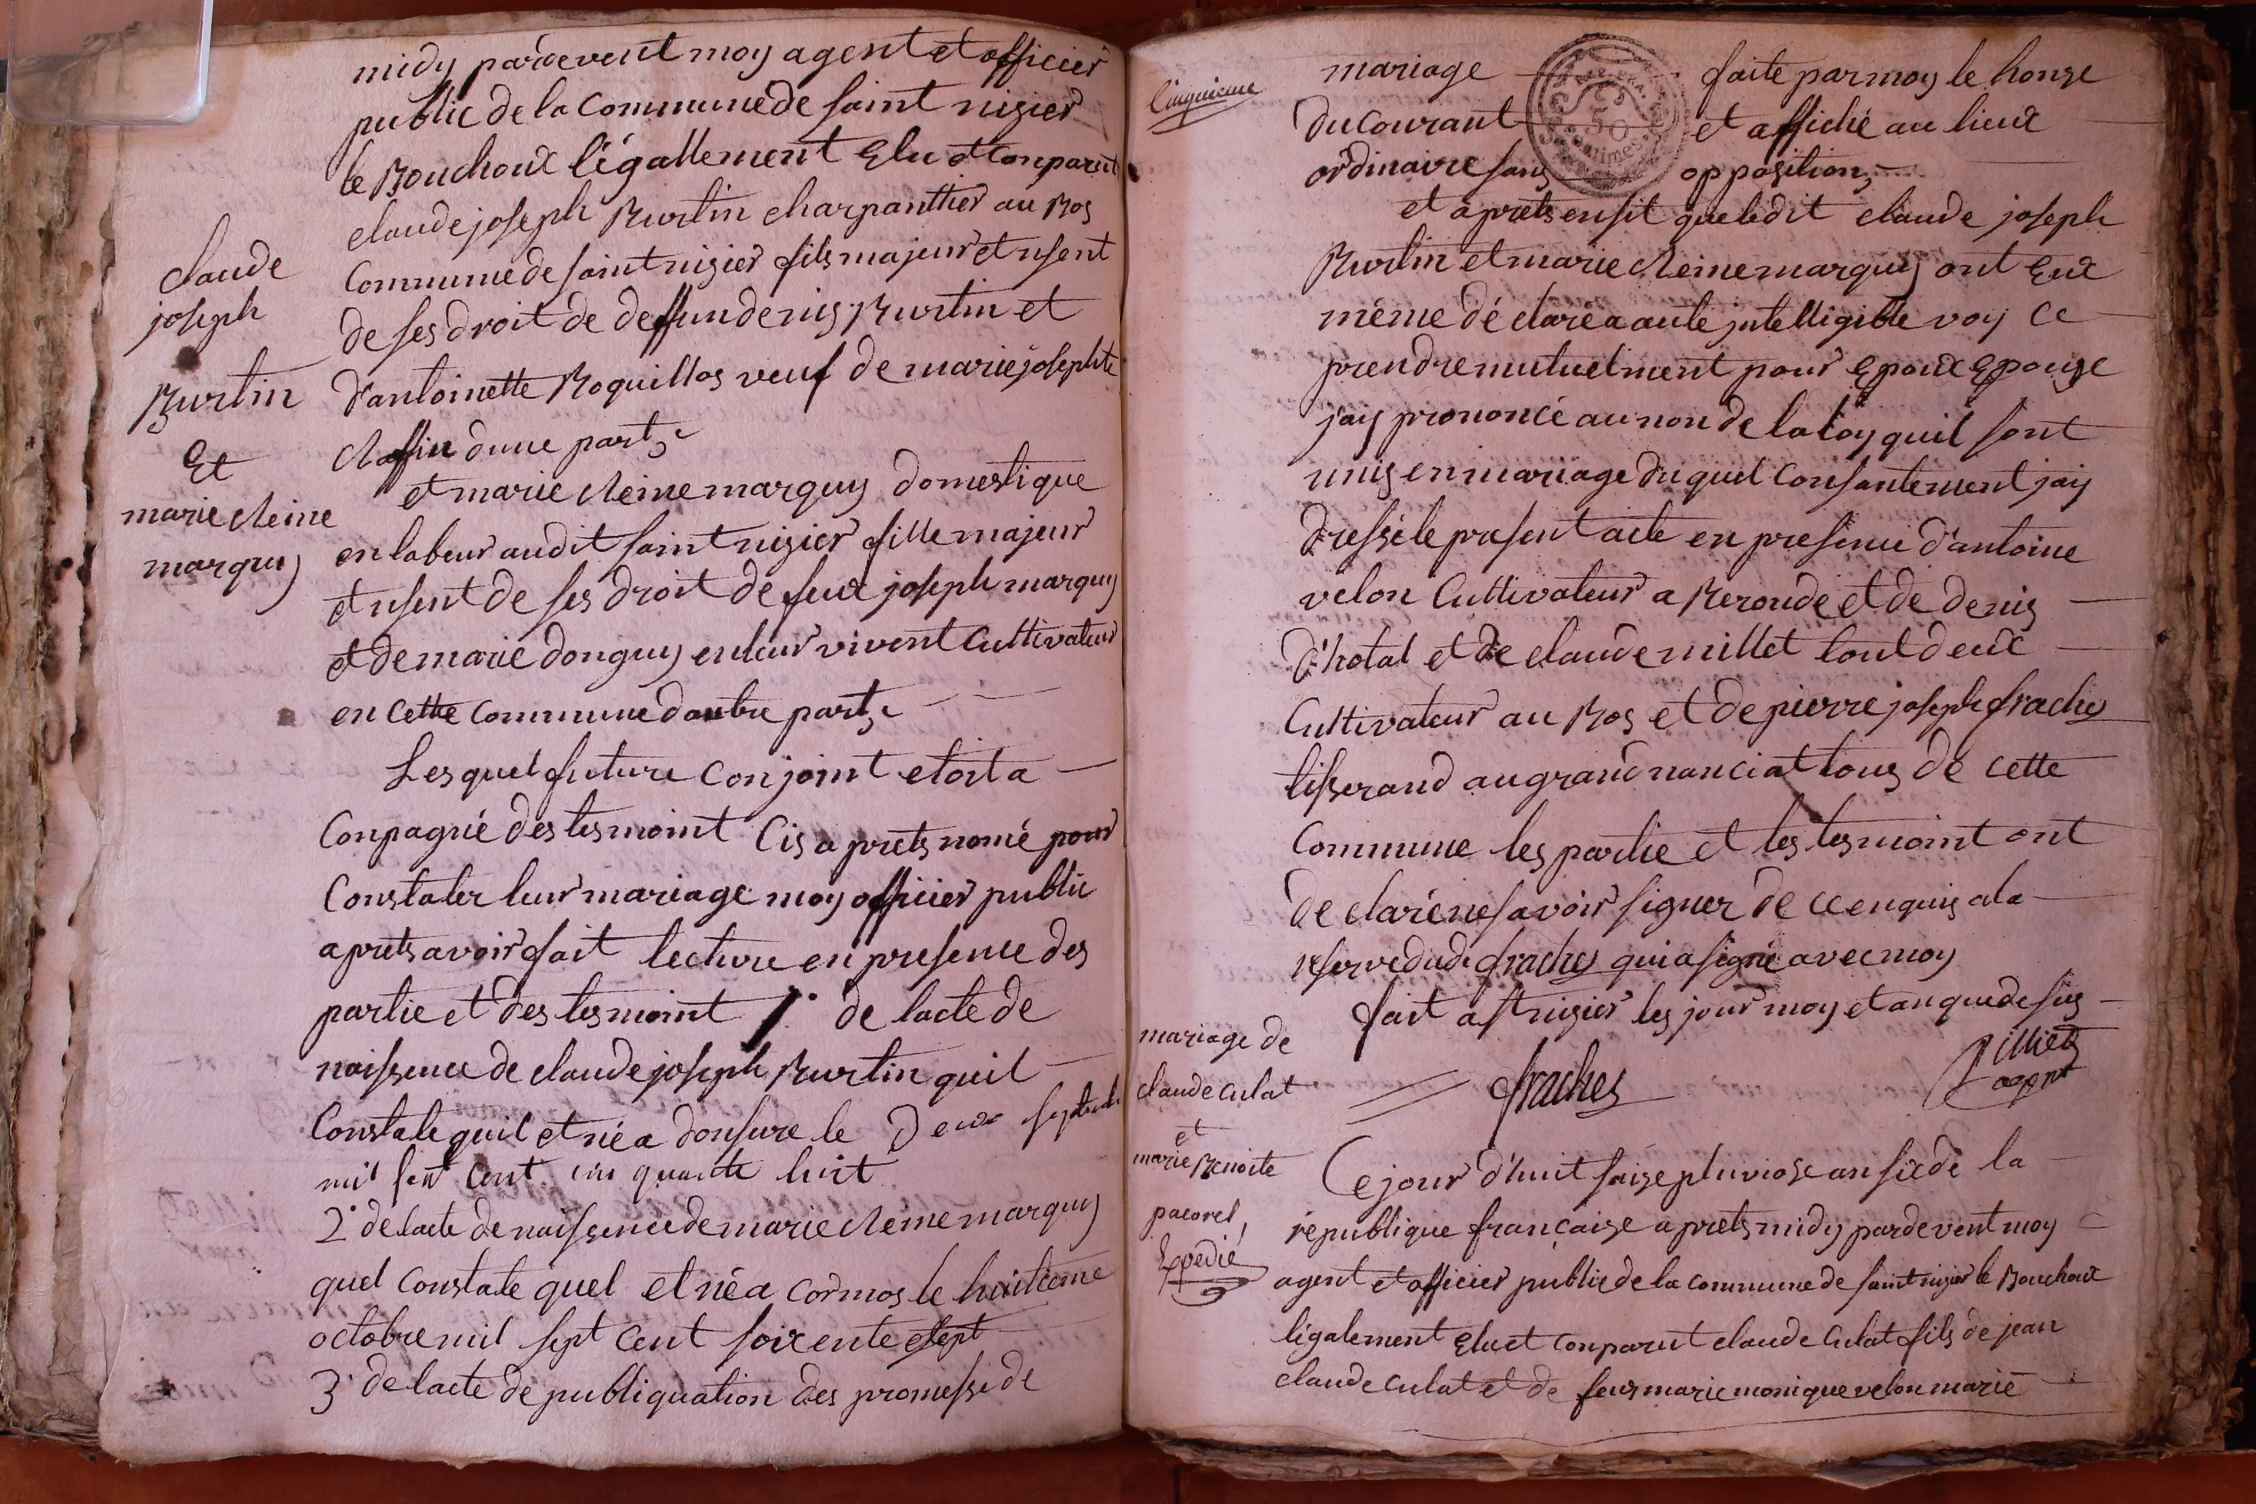 midy pardevent moy agent et officier
public de la Commune de saint nizier
le Bouchoux légallement Elu et Conparut
claude joseph Burtin charpanttier au Bos
Commune de saint nizier fils majeur et usent
de ses droit de deffun denis Burtin et
d'antoinette Boquillos veuf de marie josephte
chaffin dune part,
et marie cleine marquy domestique
en labeur audit saint nizier fille majeur
et usent de ses droit de feux joseph marquy
et de marie donguy en leur vivent Cultivateur
en Cette Commune dautre part,
Les quel future Conjoint etoit a
Conpagné des tesmoint Cis a prets nomé pour
Constater leur mariage moy officier public
a prets avoir fait lecture en presence des
partie et des tesmoint 1° de lacte de
naissence de claude joseph Burtin quil
Constate quil et né a donsure le Deux septembre
mil sept Cent cin quante huit
2° de lacte de naissence de marie cleine marquy
quel Constate quel et né a Cormos le huitieme
octobre mil sept Cent soixente et sept
3° de lacte de publiquation des promesse de
claude
joseph
Burtin
Et
marie cleine
marquy
Cinquieme
mariage faite par moy le honze
du Courant et affiché au lieux
ordinaire sans opposition,
et a prets en sit que ledit claude joseph
Burtin et marie cleine marquy ont Eux
même déclaré a aute jntelligible voy Ce
prendre mutuelment pour Epoux Epouze
j'ay prononcé au non de la loy quil sont
unis en mariage du quel Consantement jay
dressé le present acte en presence d'antoine
velon Cultivateur a Beronde et de denis
d'hotal et de claude millet tout deux
Cultivateur au Bos et de pierre joseph fraches
tisserand au grand nanciat tous de Cette
Commune les partie et les tesmoint ont
declaré ne savoir signer de ce enquis a la
reserve dudi fraches qui a signé avec moy
fait a st nizier les jour moy et an que de sus
fraches
agent
mariage de
claude culat
et
marie Benoite
pacoret,
Expedié
Ce jour d'huit saize pluviose an six de la
république française a prets midy pardevent moy
agent et officier public de la Commune de saint nizier le Bouchoux
légalement Elu et Conparut claude Culat fils de jean
claude culat et de feux marie monique velon marié